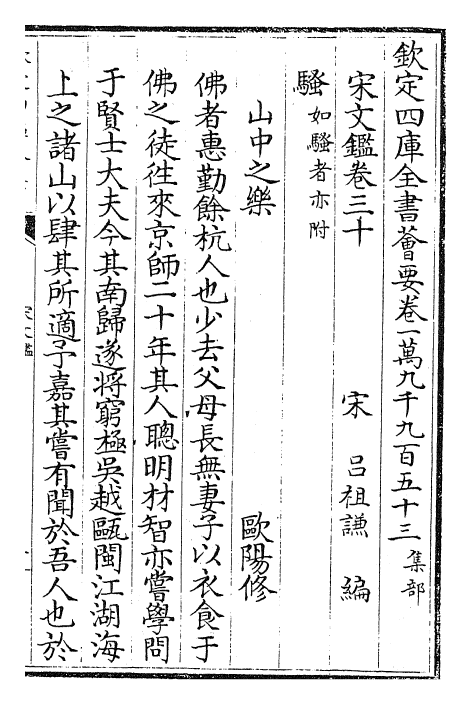 欽定四庫全書薈要卷一萬九千九百五十三 集部
宋文鑑卷三十 宋 呂祖謙 編
騷 如騷者亦附
山中之樂 歐陽修
佛者惠勤餘杭人也少去父母長無妻子以衣食于
佛之徒徃來京師二十年其人聰明材智亦嘗學問
于賢士大夫今其南歸遂將窮極吳越甌閩江湖海
上之諸山以肆其所適予嘉其嘗有聞於吾人也於